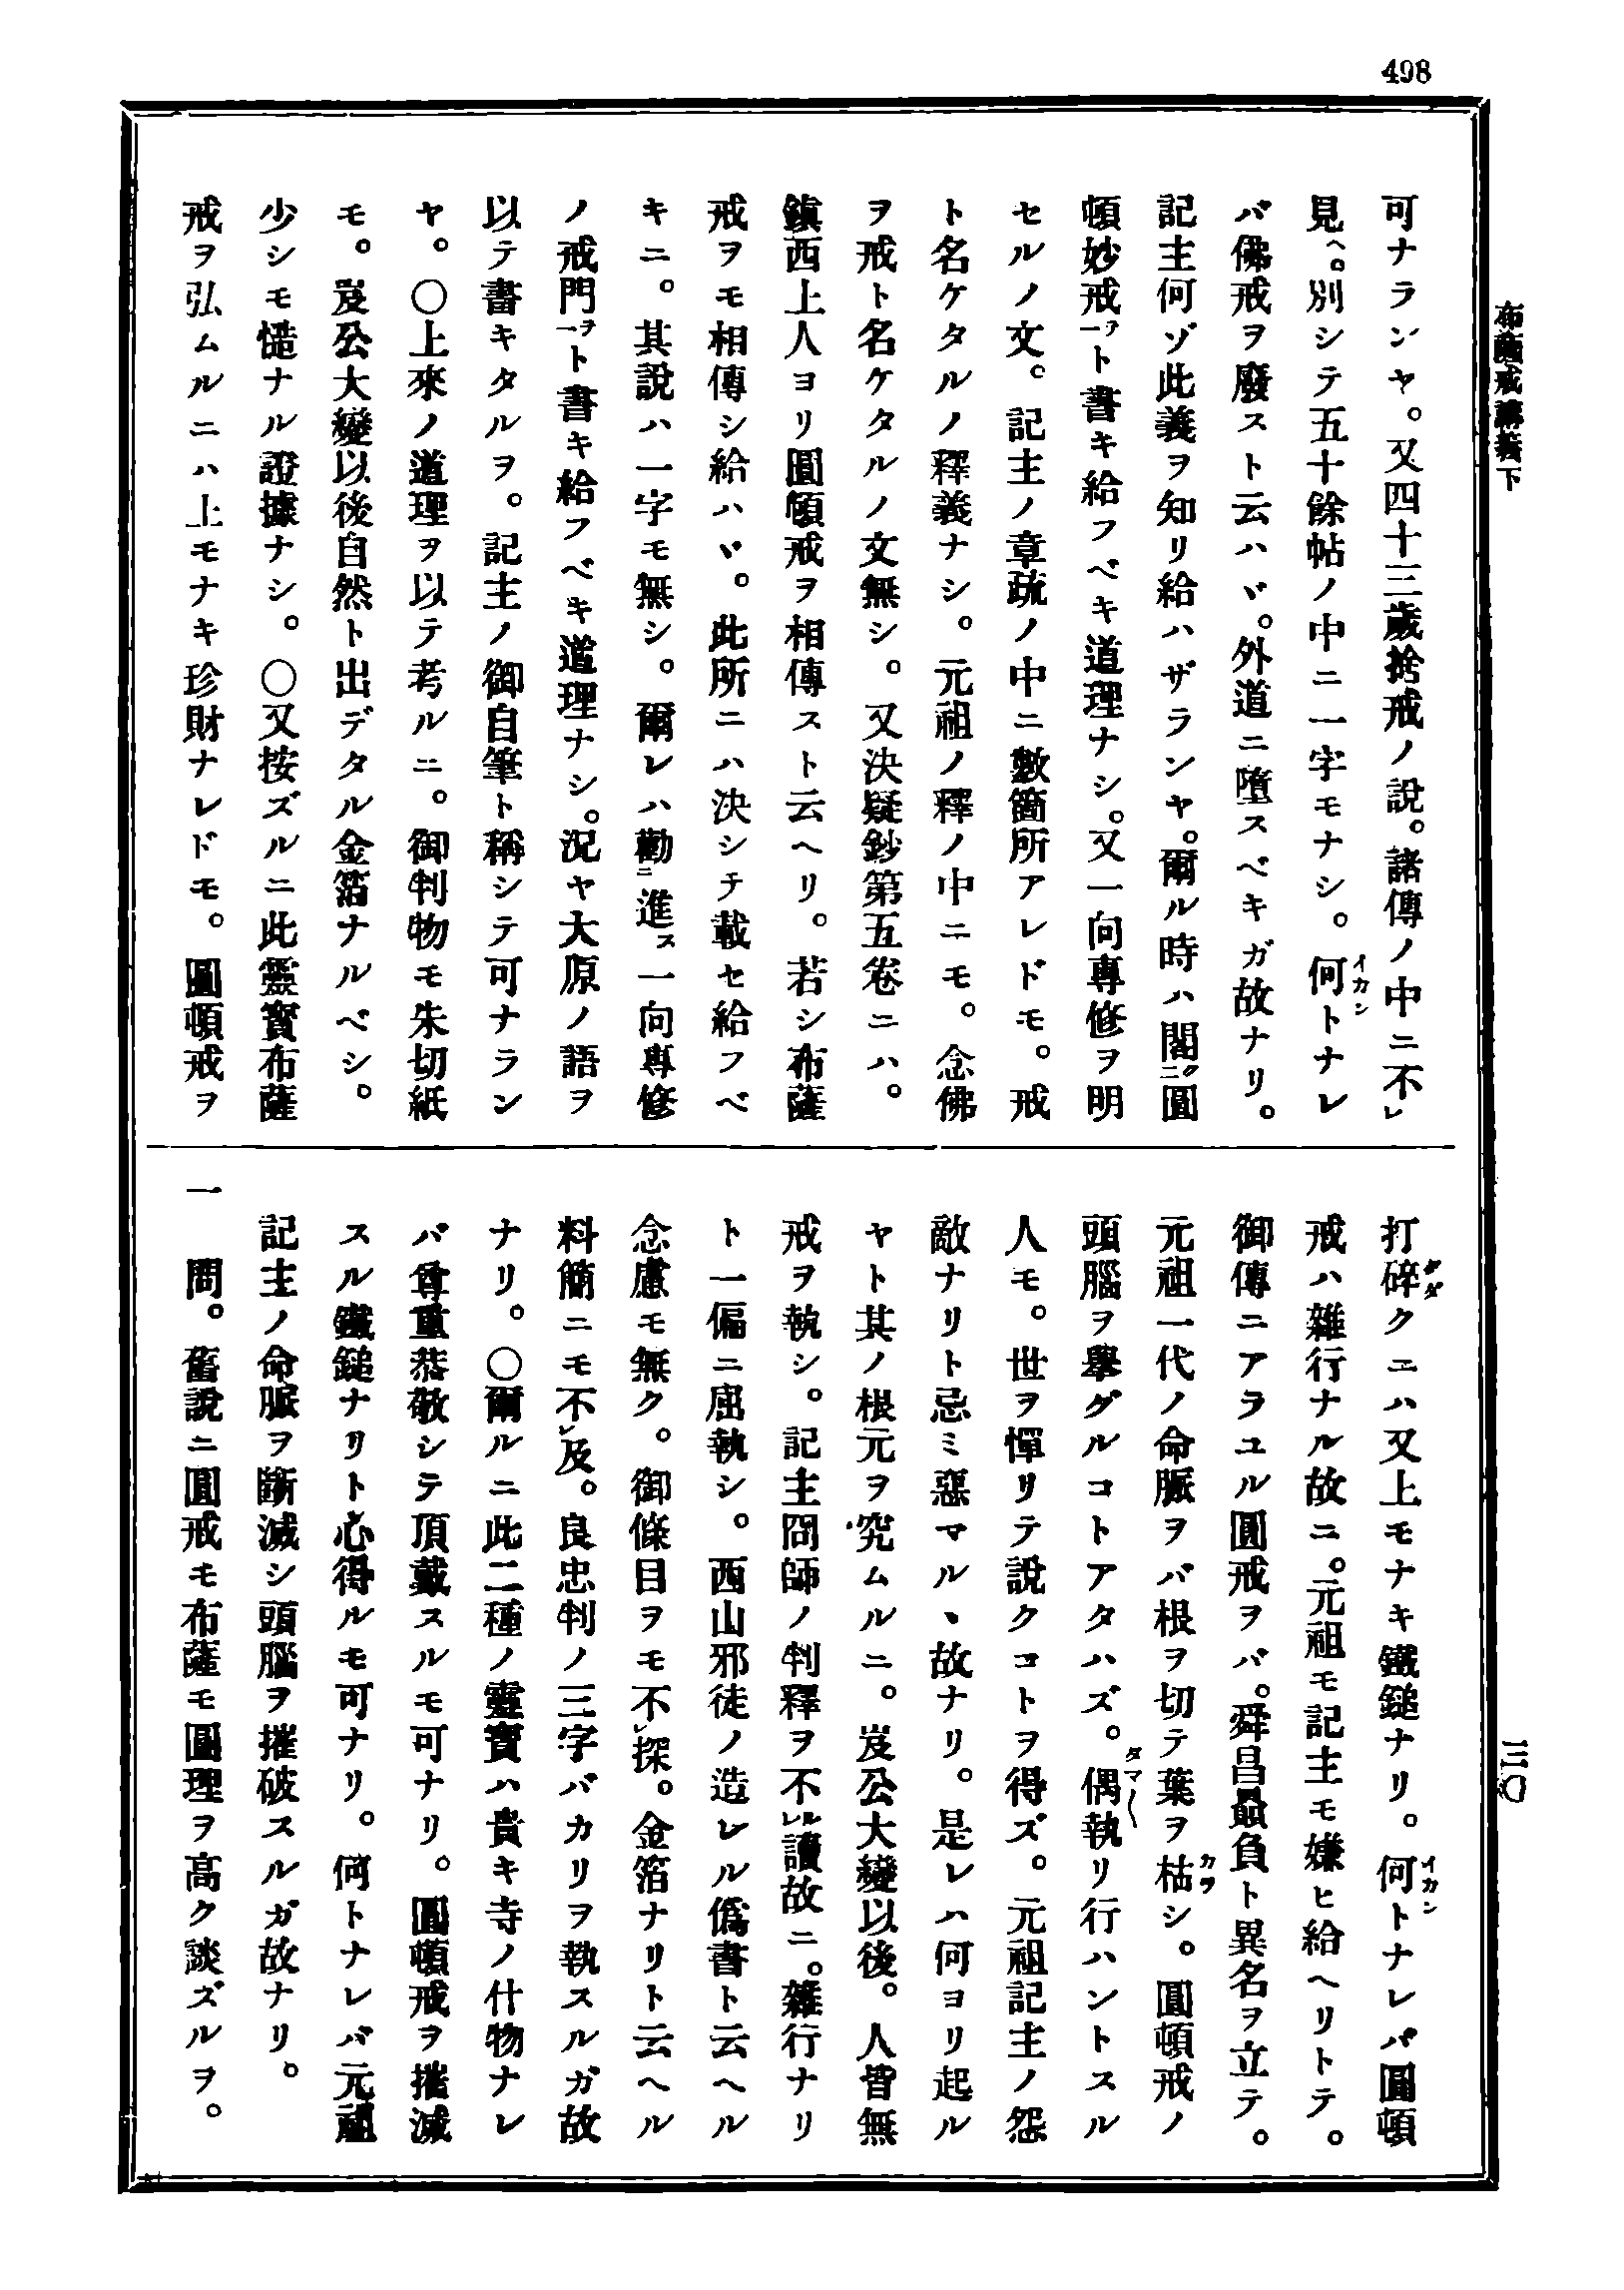 498
布薩戒講義下
三〇
可ナランヤ。又四十三歲捨戒ノ說。諸傳ノ中ニ不レ
見ヘ。別シテ五十餘帖ノ中ニ一字モナシ。何トナレ
イカン
バ佛戒ヲ廢スト云ハヾ。外道ニ墮スベキガ故ナリ。
記主何ゾ此義ヲ知リ給ハザランヤ。爾ル時ハ閣ニク圓
頓妙戒一ヲト書キ給フベキ道理ナシ。又一向專修ヲ明
セルノ文。記主ノ章疏ノ中ニ數箇所アレドモ。戒
ト名ケタルノ釋義ナシ。元祖ノ釋ノ中ニモ。念佛
ヲ戒ト名ケタルノ文無シ。又決疑鈔第五卷ニハ。
鎮西上人ヨリ圓頓戒ヲ相傳スト云ヘリ。若シ布薩
戒ヲモ相傳シ給ハヾ。此所ニハ決シテ載セ給フベ
キニ。其說ハ一字モ無シ。爾レハ勸ニ進ス一向專修
ノ戒門一ヲト書キ給フベキ道理ナシ。況ヤ大原ノ語ヲ
以テ書キタルヲ。記主ノ御自筆ト稱シテ可ナラン
ヤ。〇上來ノ道理ヲ以テ考ルニ。御判物モ朱切紙
モ。岌公大變以後自然ト出デタル金箔ナルベシ。
少シモ慥ナル證據ナシ。〇又按ズルニ此靈寶布薩
戒ヲ弘ムルニハ上モナキ珍財ナレドモ。圓頓戒ヲ
打碎クニハ又上モナキ鐵鎚ナリ。何トナレバ圓頓
イカン
戒ハ雜行ナル故ニ。元祖モ記主モ嫌ヒ給ヘリトテ。
御傳ニアラユル圓戒ヲバ。舜昌贔負ト異名ヲ立テ。
元祖一代ノ命脈ヲバ根ヲ切テ葉ヲ枯シ。圓頓戒ノ
カラ
頭腦ヲ擧グルコトアタハズ。偶執リ行ハントスル
タマ〱
人モ。世ヲ憚リテ說クコトヲ得ズ。元祖記主ノ怨
敵ナリト忌ミ惡マルヽ故ナリ。是レハ何ヨリ起ル
ヤト其ノ根元ヲ究ムルニ。岌公大變以後。人皆無
戒ヲ執シ。記主冏師ノ判釋ヲ不ルレ讀故ニ。雜行ナリ
ト一偏ニ屈執シ。西山邪徒ノ造レル僞書ト云ヘル
念慮モ無ク。御條目ヲモ不レ探。金箔ナリト云ヘル
料簡ニモ不レ及。良忠判ノ三字バカリヲ執スルガ故
ナリ。〇爾ルニ此二種ノ靈寶ハ貴キ寺ノ什物ナレ
バ尊重恭敬シテ頂戴スルモ可ナリ。圓頓戒ヲ摧滅
スル鐵鎚ナリト心得ルモ可ナリ。何トナレバ元祖
記主ノ命脈ヲ斷滅シ頭腦ヲ摧破スルガ故ナリ。
一 問。舊說ニ圓戒モ布薩モ圓理ヲ高ク談ズルヲ。